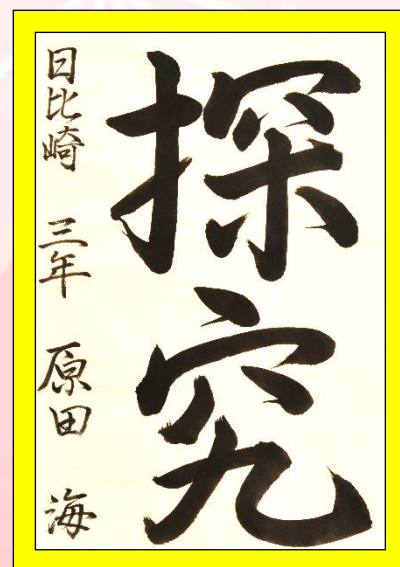 探究
日比崎 三年 原田 海